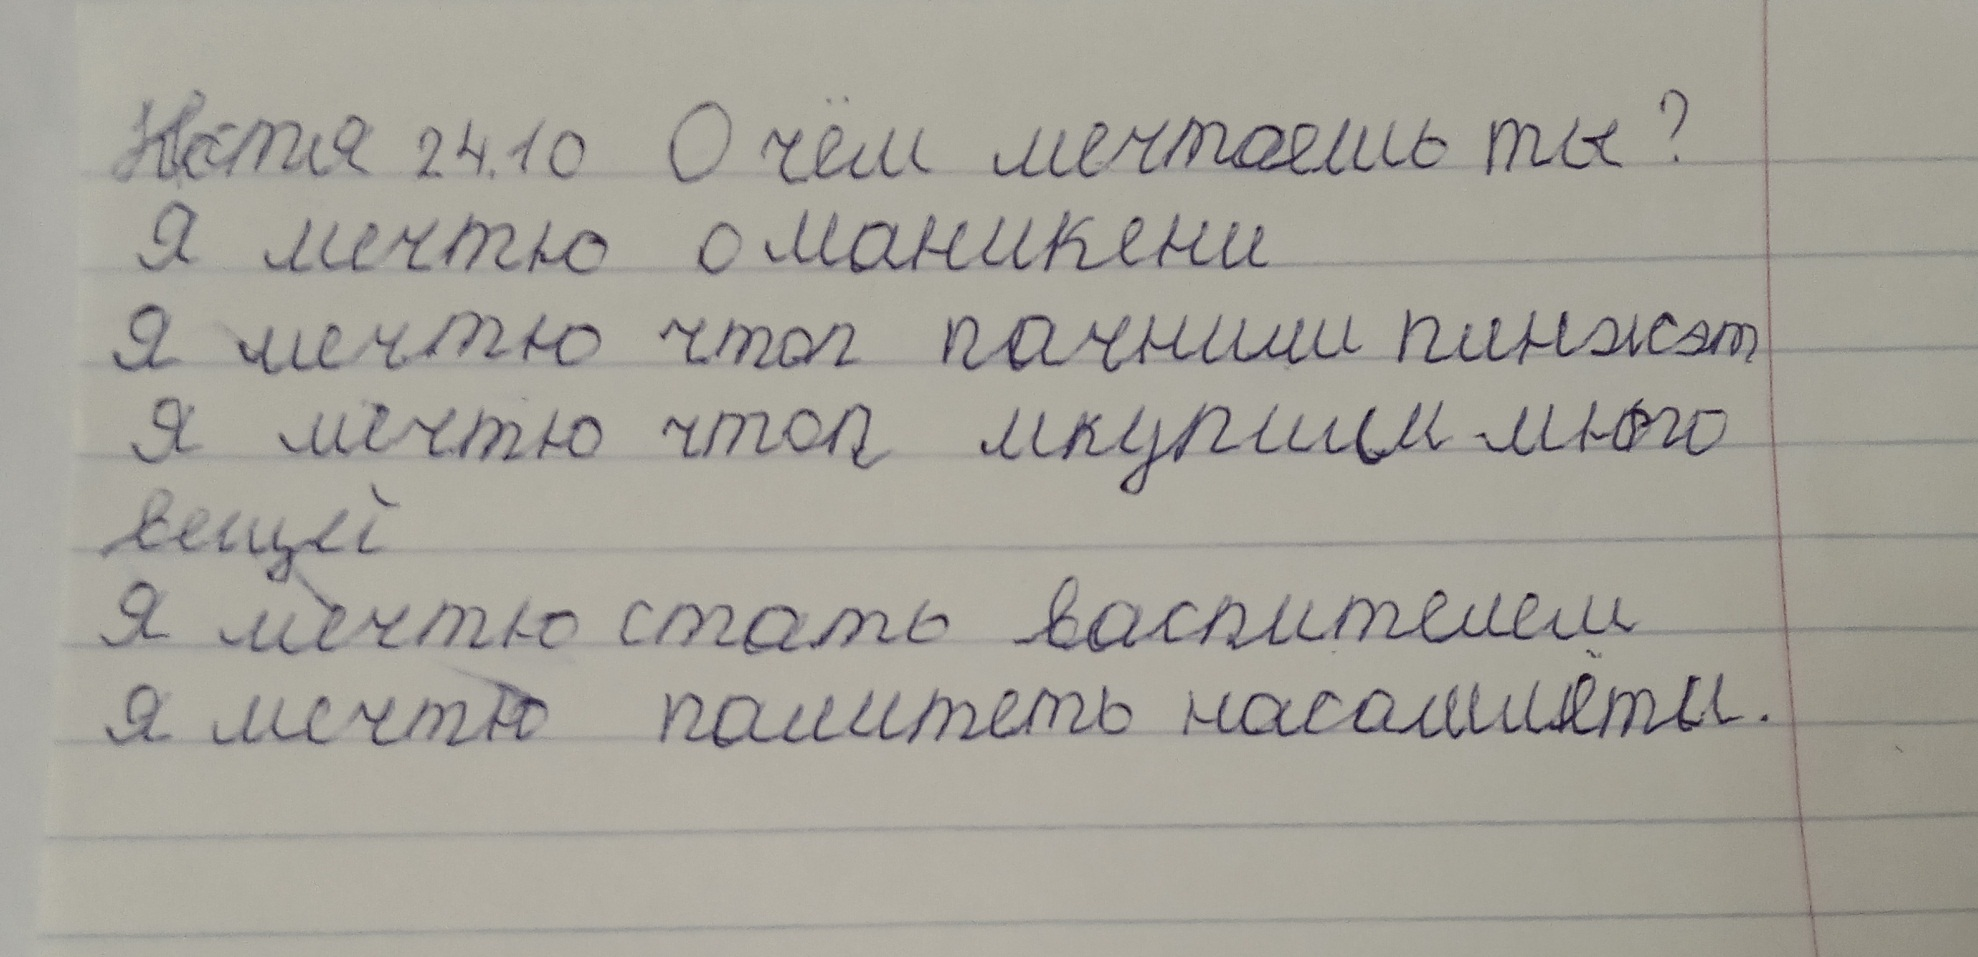 Катя 24.10 О чём мечтаешь ты?
Я мечтю о маникени
Я мечтю чтоп пачнили пинжэт
Я мечтю чтоп мкупили много
вещей
Я мечтю стать васпителем
Я мечтю палитеть насамилёти.